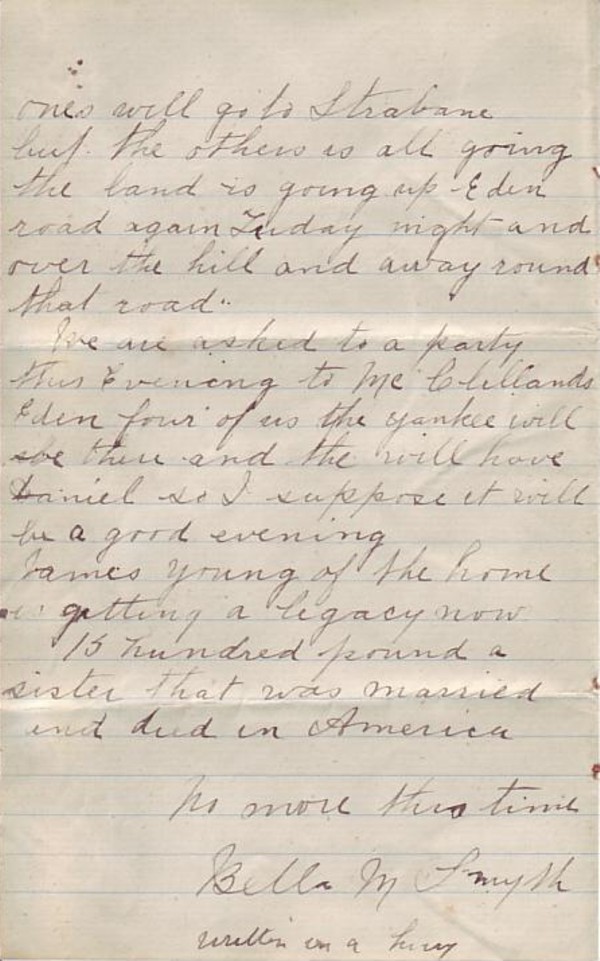 ones will go to Strabane
but the others is all going
the band is going up Eden
road again Tuday night and
over the hill and away round
that road"
We are asked to a party
this Evening to Mc Clellands
Eden four of us the yankee will
be there and the will have
Daniel so I suppose it will
be a good evening
James Young of the home
is getting a legacy now
15 hundred pound a
sister that was married
and died in America
No more this time
Bella M Smyth
written in a hury